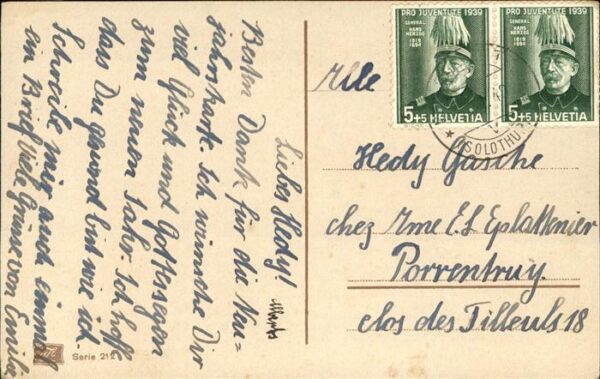 Liebes Hedy!
Besten Dank für die Neu=
jahrskarte. Ich wünsche Dir
viel Glück und Gottessegen
zum neuen Jahr. Ich hoffe
dass Du gesund bist wie ich.
Schreibe mir auch einmal
ein Brief Viele Grüsse von Emilie
Serie 212
PRO JUVENTUTE 1939
GENERAL
HANS
HERZOG
1819
1894
5+5 HELVETIA
PRO JUVENTUTE 1939
GENERAL
HANS
HERZOG
1819
1894
5+5 HELVETIA
SOLOTHUR
Mlle
Hedy Gasche
chez Mme E.L Eplattenier
Porrentruy
clos des Tilleuls 18